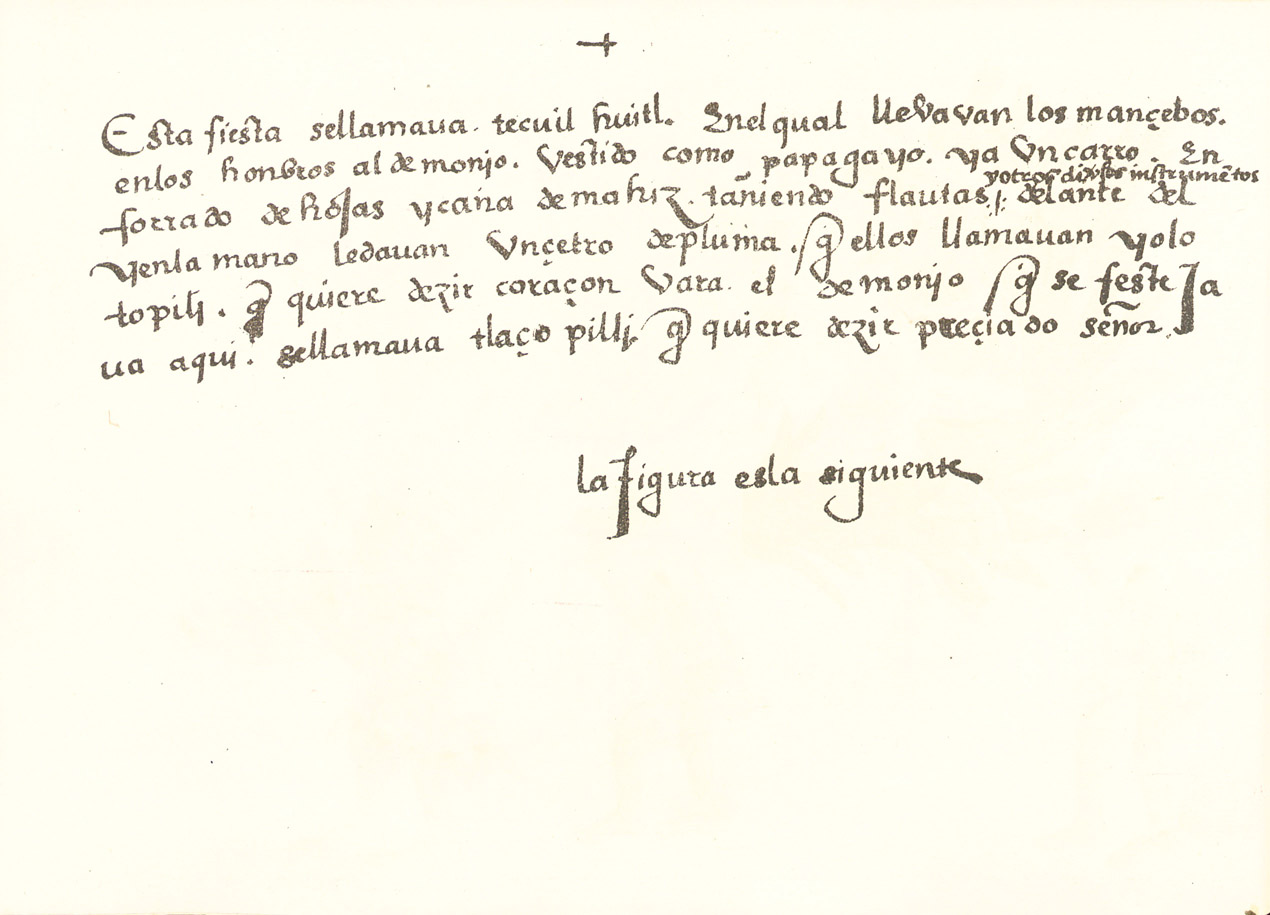 +
Esta fiesta sellamaua. tecuil huitl. Enel qual lleVavan los mançebos.
enlos honbros al demonjo. Vestido como papagayo. ya Vncarro. En
yotros diversos instrumētos
forrado de hojas ycaña demahiz. tañiendo flautas. delante del
yenla mano ledauan Vnçetro depluma. q̄ ellos llamauan yolo
topilj. q̄ quiere dezir coraçon Vara. el demonjo q̄ se festeJa
ua aqui. sellamaua tlaço pillj. q̄ quiere dezir preçiado señor.
la figura esla siguiente